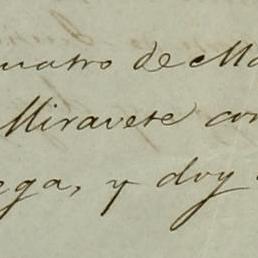 uatro de Ma
Miravete con
ega, y doy